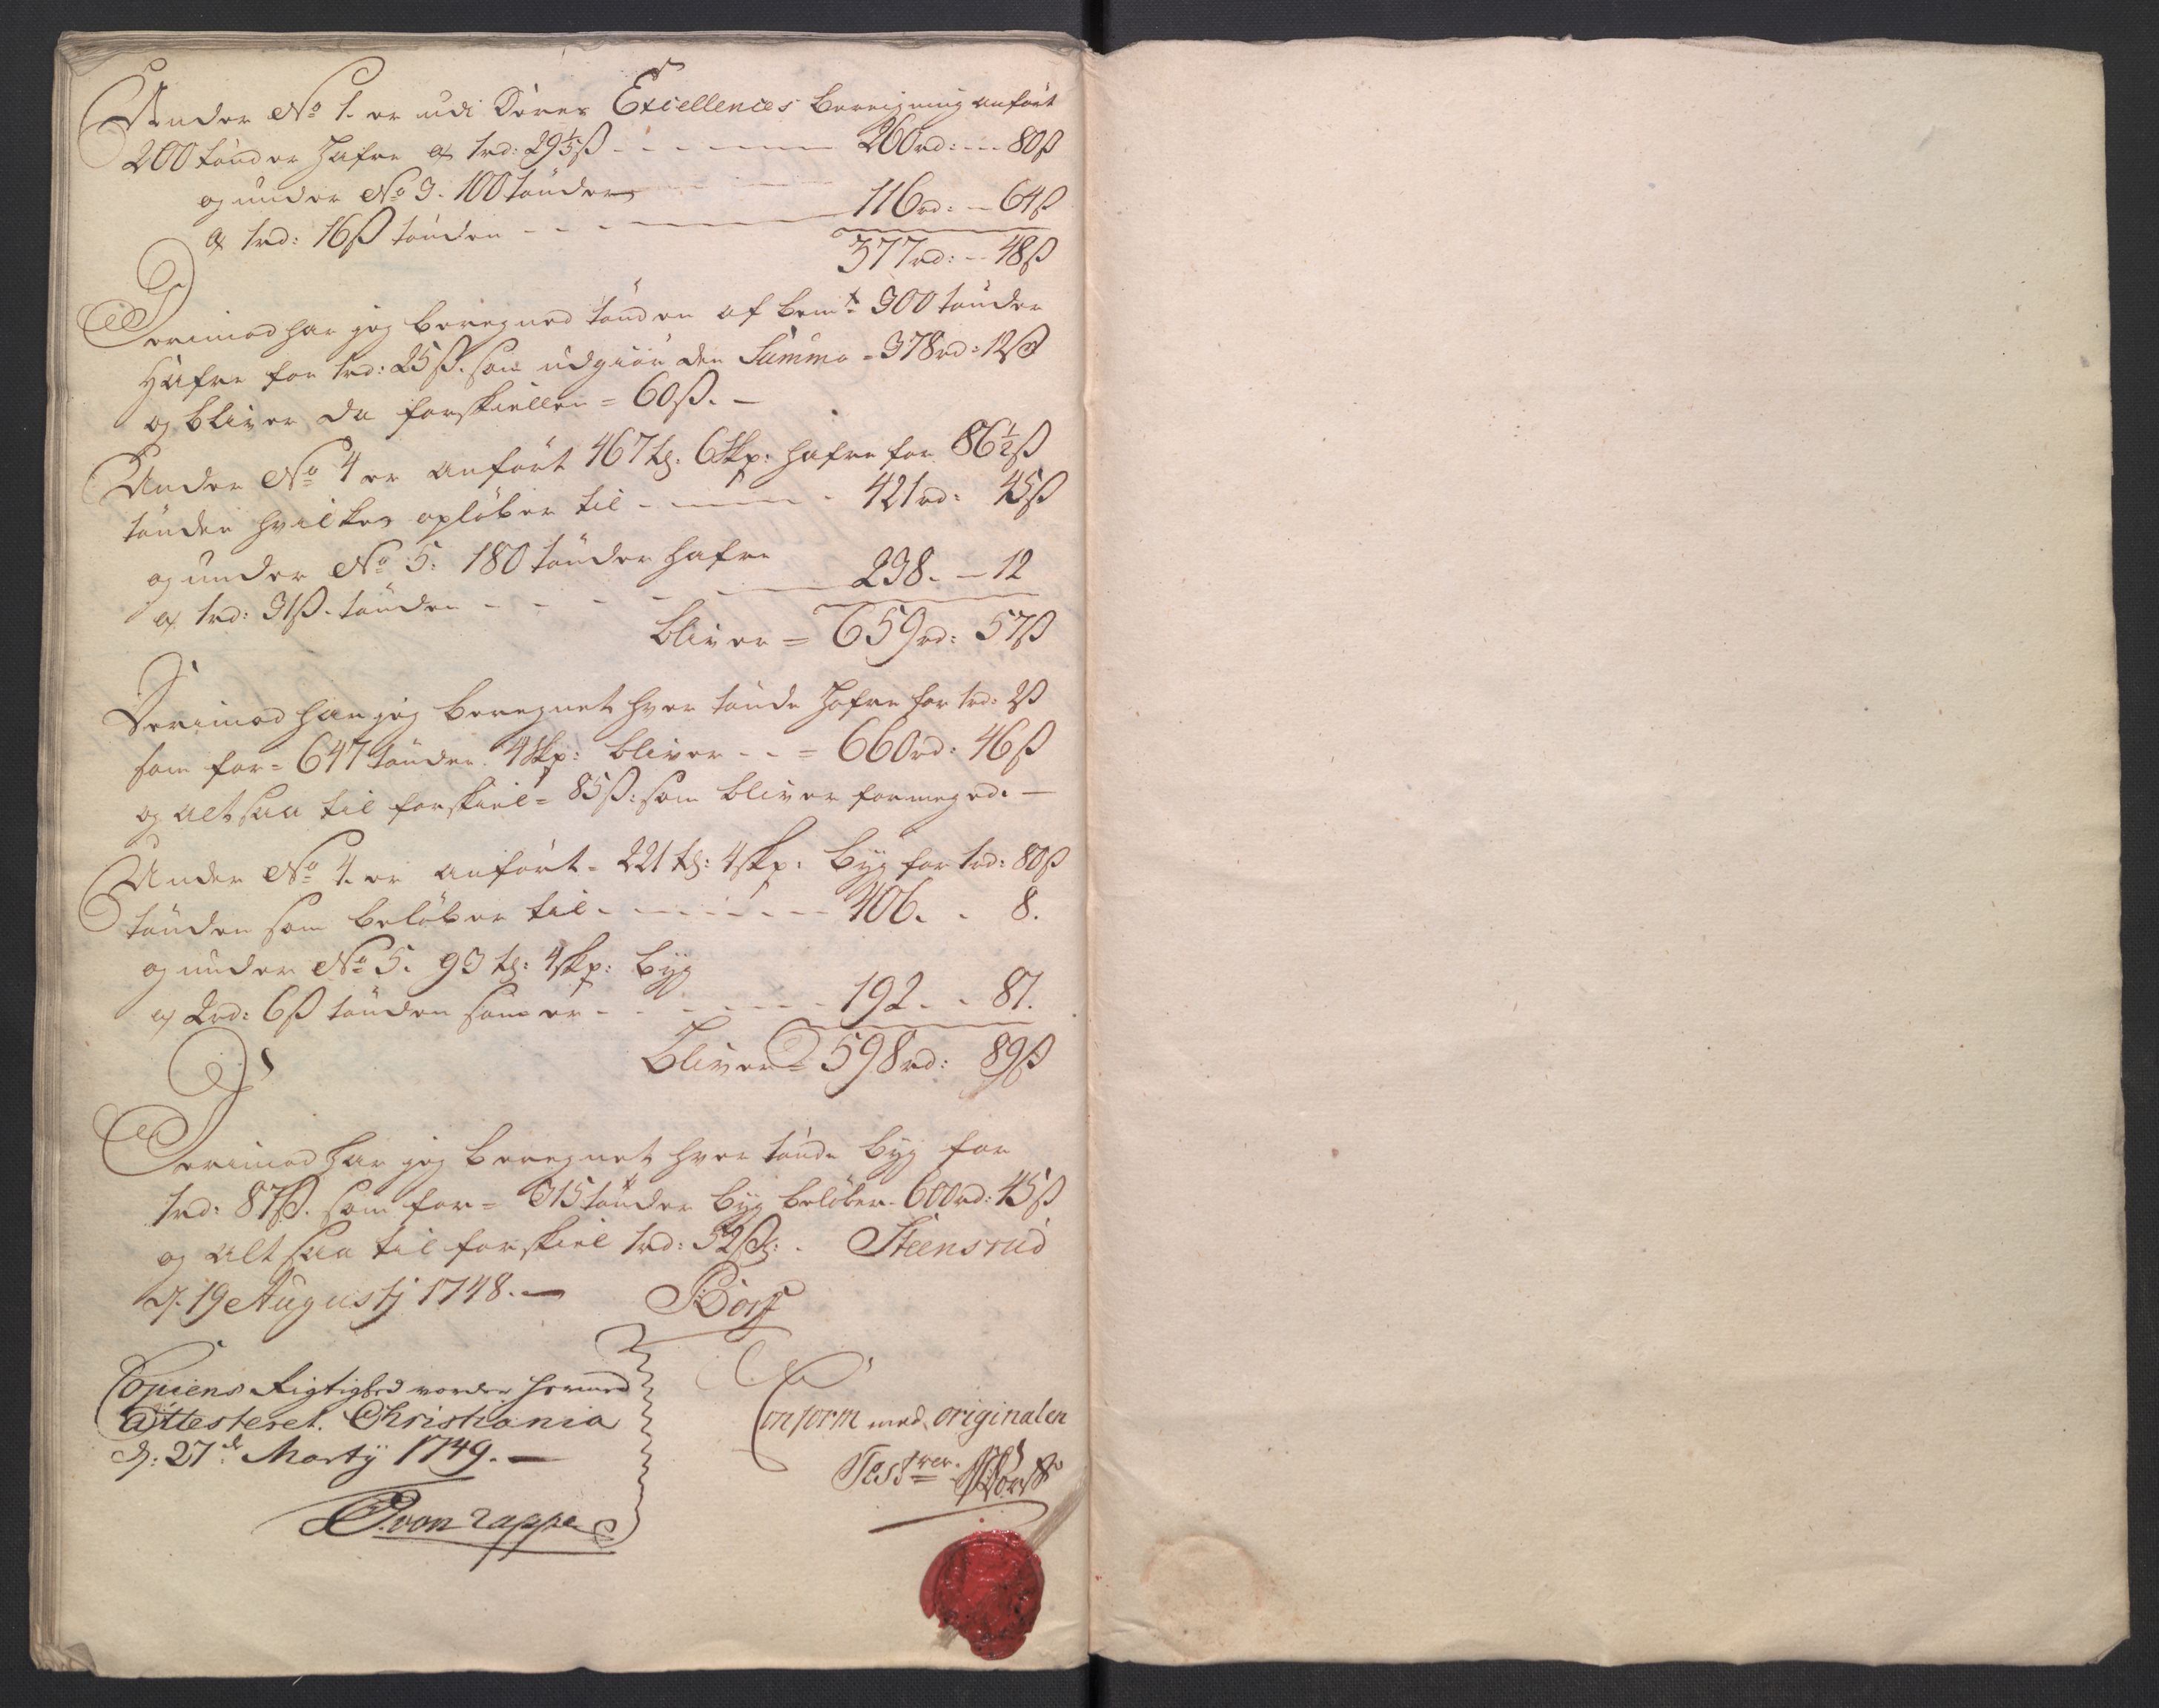 Under No 1. er udi Deres Excellences bereigning anfört
200 tönder Hafre a 1rd: 29⅕ß - - - 260rd: -- 80ß
og under No 3. 100 tönder
a 1rd: 16ß tönden - - - 116rd: - 64ß
377rd: -- 48ß
Derimod har jeg beregned tönden af bemte 300 tönder
Hafre for 1rd: 25ß. som udgiör den Summa = 378rd: 12ß
og bliver da forskiellen = 60ß. -
Under No 4 er anfört 467 tr: 6 skp: hafre for 86½ß
tönden hvilket oplöber til - - - 421rd: 45ß
og under No 5. 180 tönder hafre
a 1rd: 31ß. tönden - - - 238. - 12
bliver = 659rd: 57ß
Derimod har jeg beregnet hver tönde Hafre for 1rd: 2ß
som for = 647 tönder 4 skp: bliver - - = 660rd: 46ß
og altsaa til forskiel = 85ß: som bliver formeged. -
Under No 4. er anfört = 221 tr: 4 skp: byg for 1rd: 80ß
tönden som belöber til - - - 406. - 8.
og under No 5. 93 tr: 4 skp: byg
a 2rd: 6ß tönden som er - - - 192. - 81.
bliver = 598rd: 89ß
Derimod har jeg beregnet hver tönde byg for
1rd: 87ß. som for = 315 tönder byg belöber - 600rd: 45ß
og altsaa til forskiel 1rd: 52ß: . Steensrud
d. 19 Augustj 1748. - Borf
Copiens Rigtighed vorder hermed
attesteret. Christiania
d: 27de Martij 1749. -
von Rappe
Conform med originalen
Test